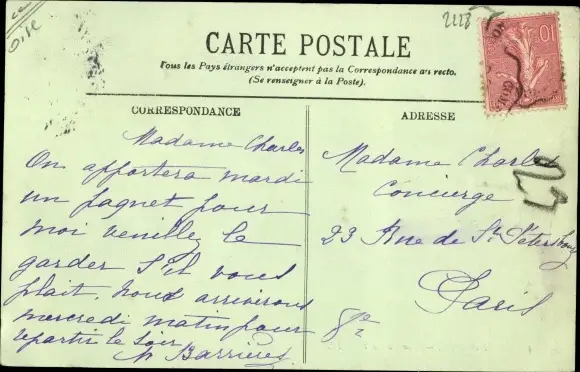 2228
Oise
10
CARTE POSTALE
Tous les Pays étrangers n'acceptent pas la Correspondance au recto.
(Se renseigner à la Poste).
CORRESPONDANCE
Madame Charles
On apportera mardi
un paquet pour
moi veuillez le
garder s'il vous
plait, nous arriverons
mercredi matin pour
repartir le soir
Barrières
ADRESSE
Madame Charles
Concierge
23 Rue de St Pétersbourg
Paris
8e